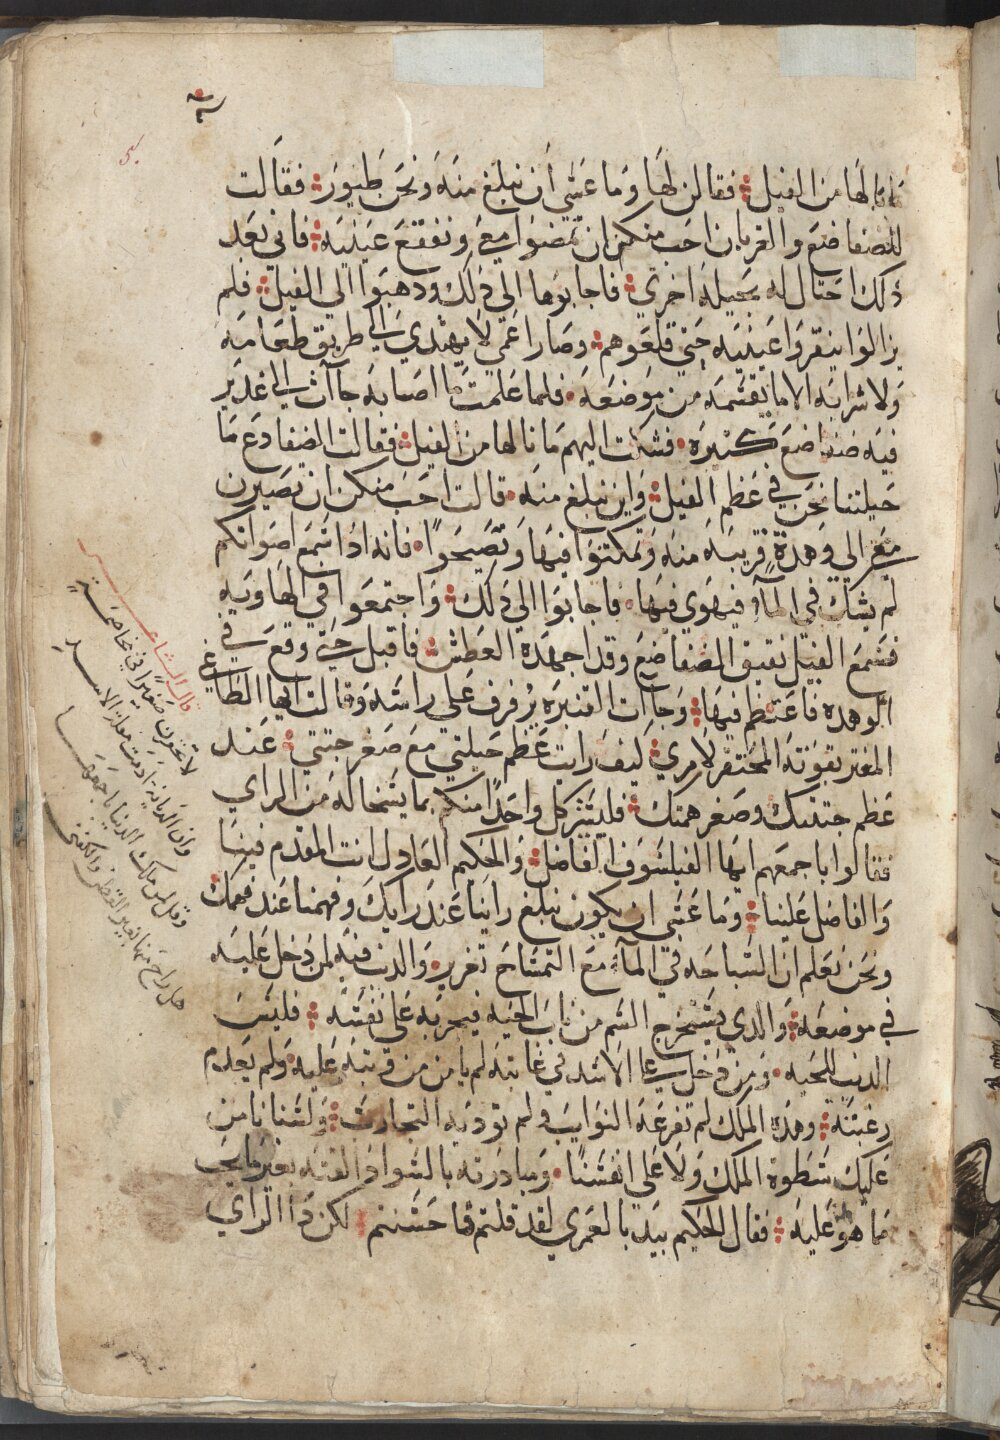 ما نالها من الفيل فقالن لها وما عسى أن نبلغ منه ونحن طيور فقالت
للضفاضع والغربان احب منكن ان تمضوا معي ونفقع عينيه فاني بعد
ذلك احتال له بحيله اخرى فاجابوها الى ذلك ودهبوا الي الفيل فلم
يزالوا ينقروا عينيه حتى قلعوهم وصار اعمى لا يهتدي الى طريق طعامه
ولا شرابه الا ما يقسمه من موضعه فلما علمت ما اصابه جاآت الى غدير
فيه ضفاضع كثيره فشكت اليهم ما نالها من الفيل فقالت الضفادع ما
حيلتنا نحن في عظم الفيل واين نبلغ منه قالت احب منكن ان تصيرن
معي الي وهدة قريبه منه وتمكتوا فيها وتصيحوا فانه ادا سمع اصواتكم
لم يشك في المآء فيهوي فيها فاجابوا الي ذلك واجتمعوا في الهاويه
فسمع الفيل نقيق الضفاضع وقد اجهده العطش فاقبل حتى وقع في
الوهده فاعتطم فيها وجاآت القنبره ترفرف على راسه وقالت ايها الطاغي
المغتر بقوته المحتقر لامري كيف رايت عظم حيلتي مع صغر جتتي عند
عظم جتتك وصغر همتك فليشر كل واحدًا منكم بما يسنحا له من الراي
فقالوا باجمعهم ايها الفيلسوف الفاضل والحكيم العادل انت المقدم فينا
والفاضل علينا وما عسى ان يكون نبلغ راينا عند رايك وفهمنا عند فهمك
ونحن نعلم ان السباحه في المآء مع التمساح تغرير والدنب فيه لمن دخل عليه
في موضعه والدي يستخرج السم من ناب الحيه فيجربه على نفسه فليس
الدنب للحيه ومن دخل على الاسد في غابته لم يامن من وتبته عليه ولم يعدم
رغبته وهدا الملك لم تفزعه النوايب ولم تودبه التجارب ولسنا نامن
عليك سطوة الملك ولا على انفسنا ومبادرته بالسوا والفتنه بغير ما يجب
ما هو عليه فقال الحكيم بيدبا لعمري لقد قلتم فاحسنتم لكن دا الراي
قال الشاعر
لا تحقرن صغيرًا في مخاصمة
وان الدبابة ادمت مقلة الاسد
وقل لمن ملك الدنيا باجمعها
هل راح منها بغير القطن والكفن